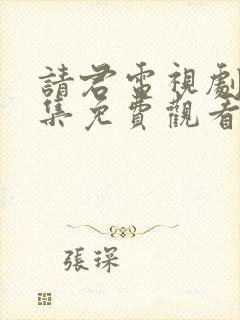 請君電視劇
集免費觀看
張琛